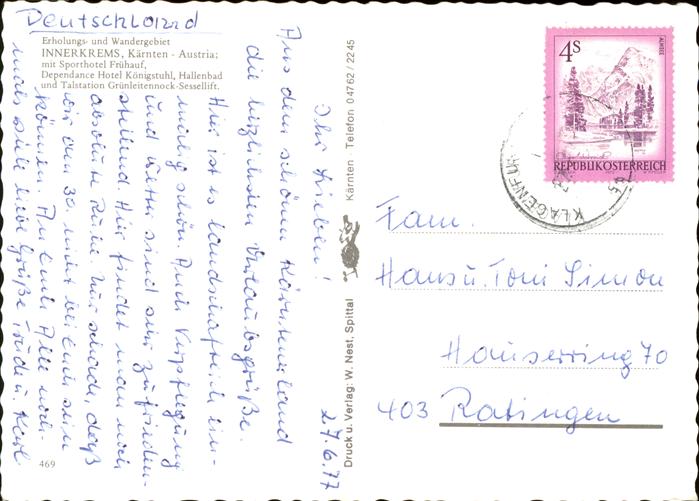 Deutschland
Erholungs- und Wandergebiet
INNERKREMS, Kärnten - Austria;
mit Sporthotel Frühauf,
Dependance Hotel Königstuhl, Hallenbad
und Talstation Grünleitennock-Sessellift.
27.6.77
Ihr Lieben!
Aus dem schönen Kärntenerland
die herzlichsten Urlaubsgrüße.
Hier ist es landschaftlich un-
mäßig schön. Auch Verpflegung
und Wetter sind sehr zufrieden-
stellend. Hier findet man noch
absolute Ruhe. Nur schade, daß
wir am 30. nicht bei Euch sein
können. An Euch Alle noch-
mals liebe Grüße Trude u Karl
469
Druck u. Verlag: W. Nest, Spittal
Kärnten Telefon 04762/2245
4S
ALMSEE
REPUBLIK ÖSTERREICH
KLAGENFUR
Fam.
Hans u. Toni Simon
Hauserring 70
403 Ratingen